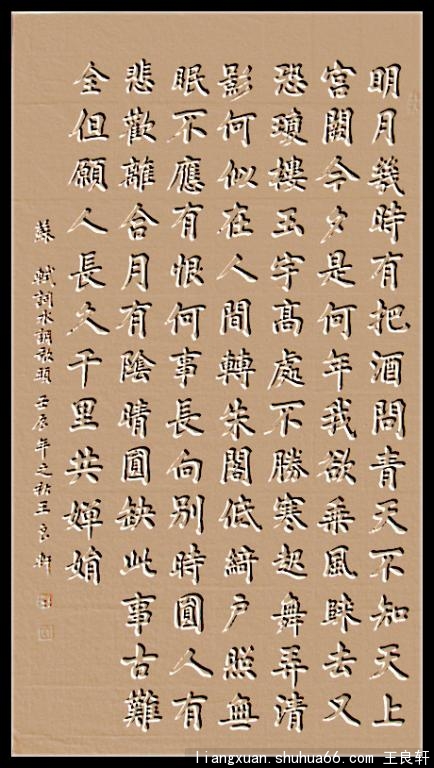 明月幾時有把酒問青天不知天上
宮闕今夕是何年我欲乘風歸去又
恐瓊樓玉宇高處不勝寒起舞弄清
影何似在人間轉朱閣低綺戶照無
眠不應有恨何事長向別時圓人有
悲歡離合月有陰晴圓缺此事古難
全但願人長久千里共嬋娟
蘇軾詞水調歌頭壬辰年之秋王良軒
liangxuan.shuhua66.com 王良轩